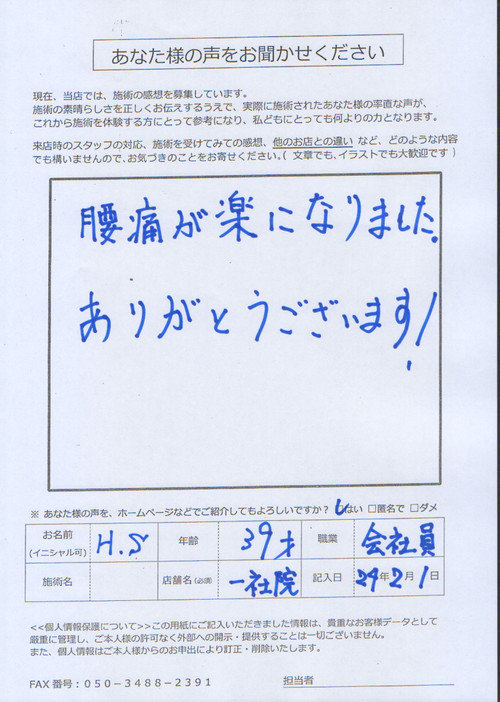 あなた様の声をお聞かせください
現在、当店では、施術の感想を募集しています。
施術の素晴らしさを正しくお伝えするうえで、実際に施術されたあなた様の率直な声が、
これから施術を体験する方にとって参考になり、私どもにとっても何よりの力となります。
来店時のスタッフの対応、施術を受けてみての感想、他のお店との違い など、どのような内容
でも構いませんので、お気づきのことをお寄せください。( 文章でも、イラストでも大歓迎です )
腰痛が楽になりました。
ありがとうございます!
※ あなた様の声を、ホームページなどでご紹介してもよろしいですか? はい □匿名で □ダメ
お名前 (イニシャル可) H.S 年齢 39才 職業 会社員
施術名 店舗名 (必須) 一社院 記入日 29年2月1日
<<個人情報保護について>>この用紙にご記入いただきました情報は、貴重なお客様データとして
厳重に管理し、ご本人様の許可なく外部への開示・提供することは一切ございません。
また、個人情報はご本人様からのお申出により訂正・削除いたします。
FAX 番号：050－3488－2391 担当者